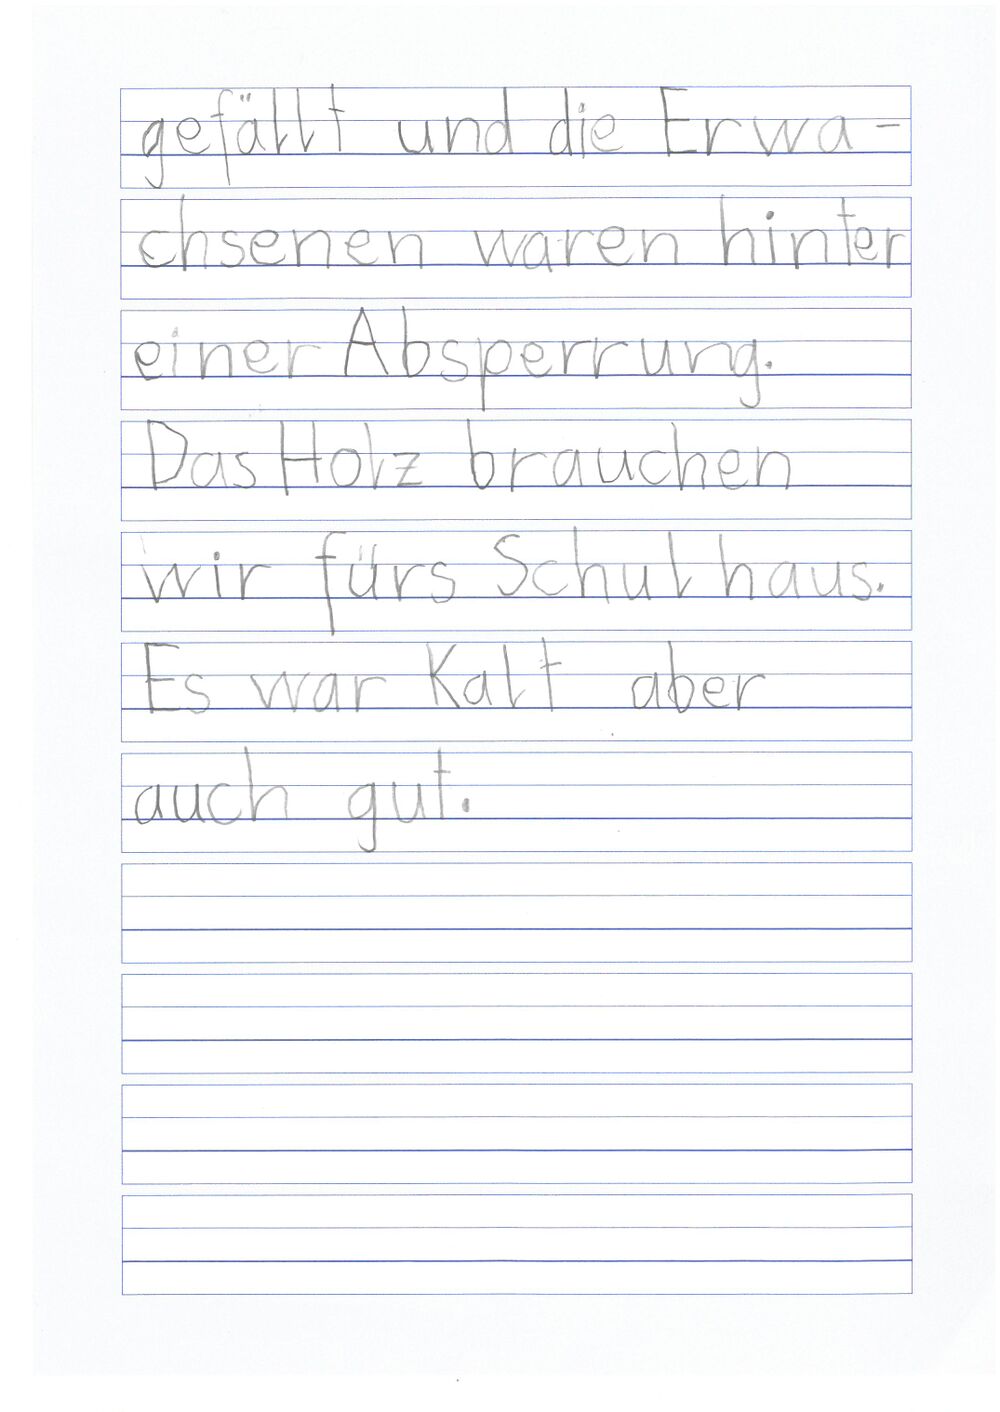 gefällt und die Erwa-
chsenen waren hinter
einer Absperrung.
Das Holz brauchen
wir fürs Schulhaus.
Es war Kalt aber
auch gut.